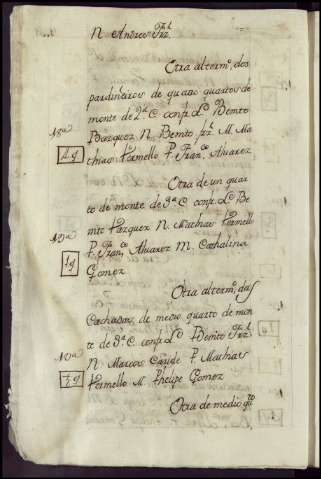 N. Andres Frz.
Otra al term.º dos
pardiñeiros de quatro quartos de
monte de 2.ª C. conf. L.do Benito
Bazquez N. Benito frz. M. Ma
thias Vermello P. Fran.co Alvarez
Otra de un quar
to de monte de 3.ª C. conf. L.do Be
nito Vazquez N. Mathias Vermello
P. Fran.co Alvarez M. Cathalina
Gomez
Otra al term.º das
Cachadas, de medio quarto de mon
te de 3.ª C. conf. L.do Benito Frz.
N. Marcos P. Mathias
Vermello M. Phelipe Gomez
Otra de medio q.to